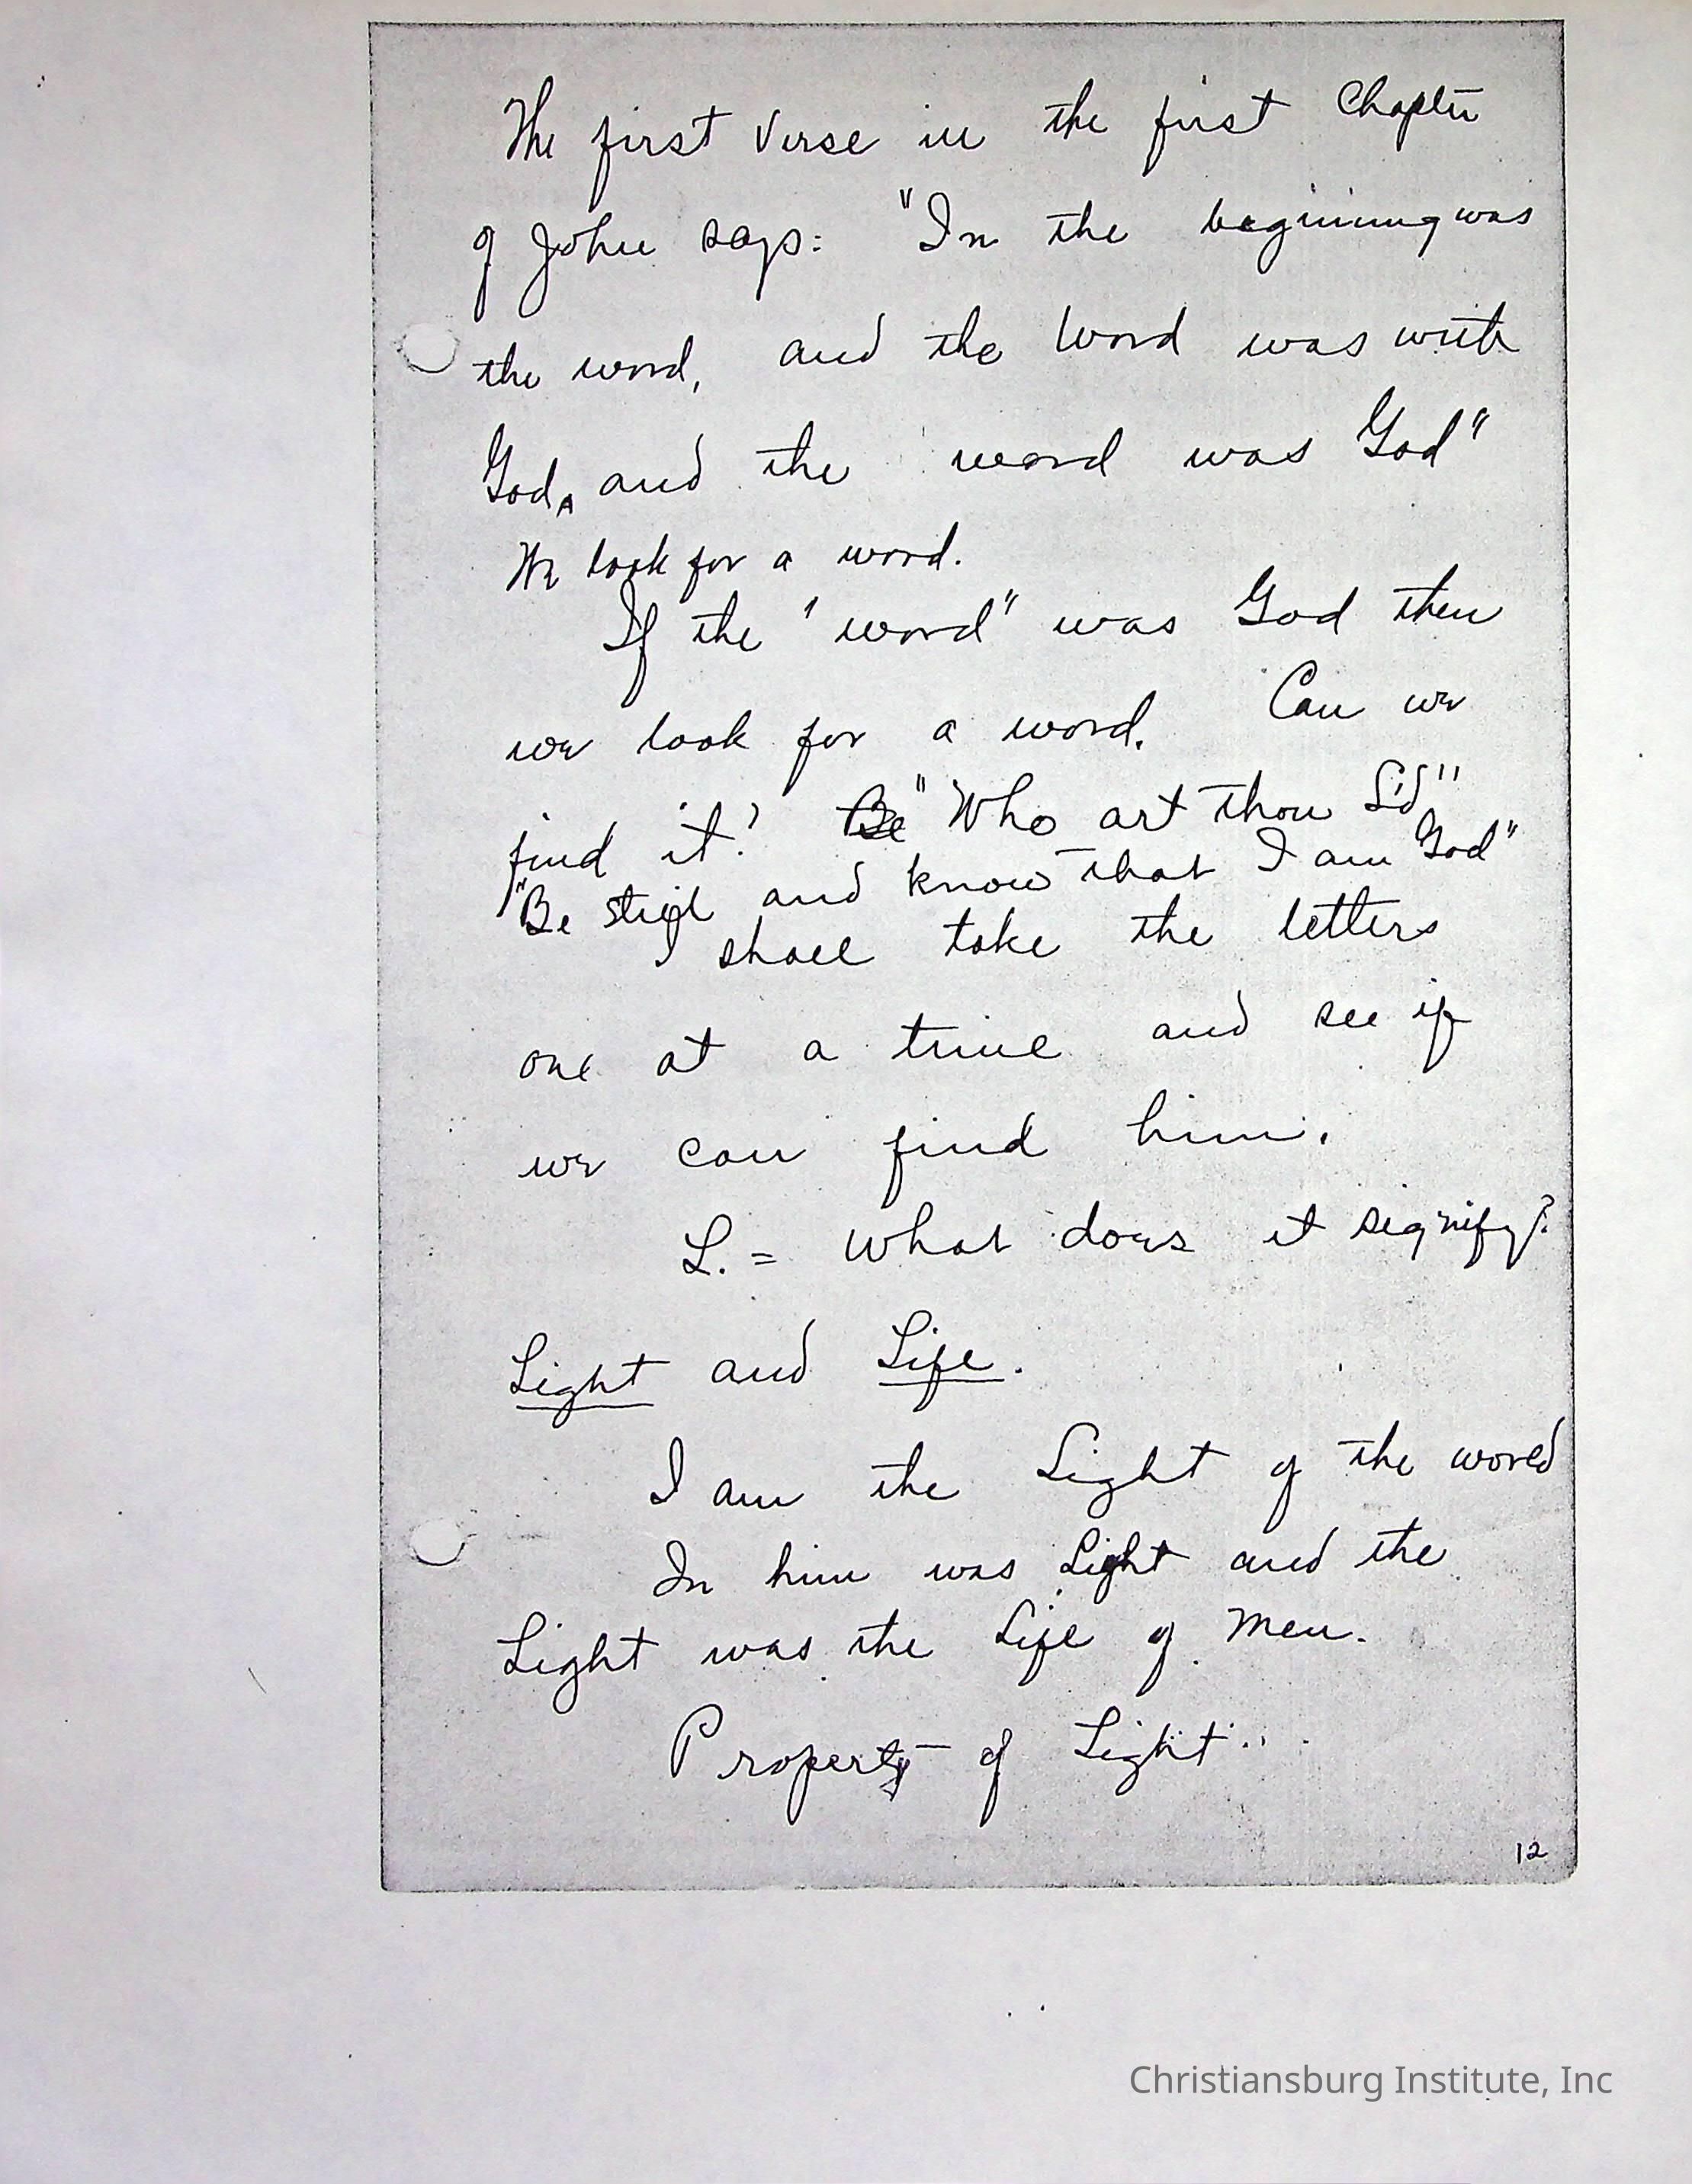 The first Verse in the first Chapter
of John says: "In the beginning was
the word, and the Word was with
God, and the word was God"
We look for a word.
If the "word" was God then
we look for a word. Can we
find it? Be "Who art thou L'd"
"Be still and know that I am God"
I shall take the letters
one at a time and see if
we can find him.
L. = What does it signify?
Light and Life.
I am the Light of the world
In him was Light and the
Light was the Life of men.
Property of Light..
12
Christiansburg Institute, Inc